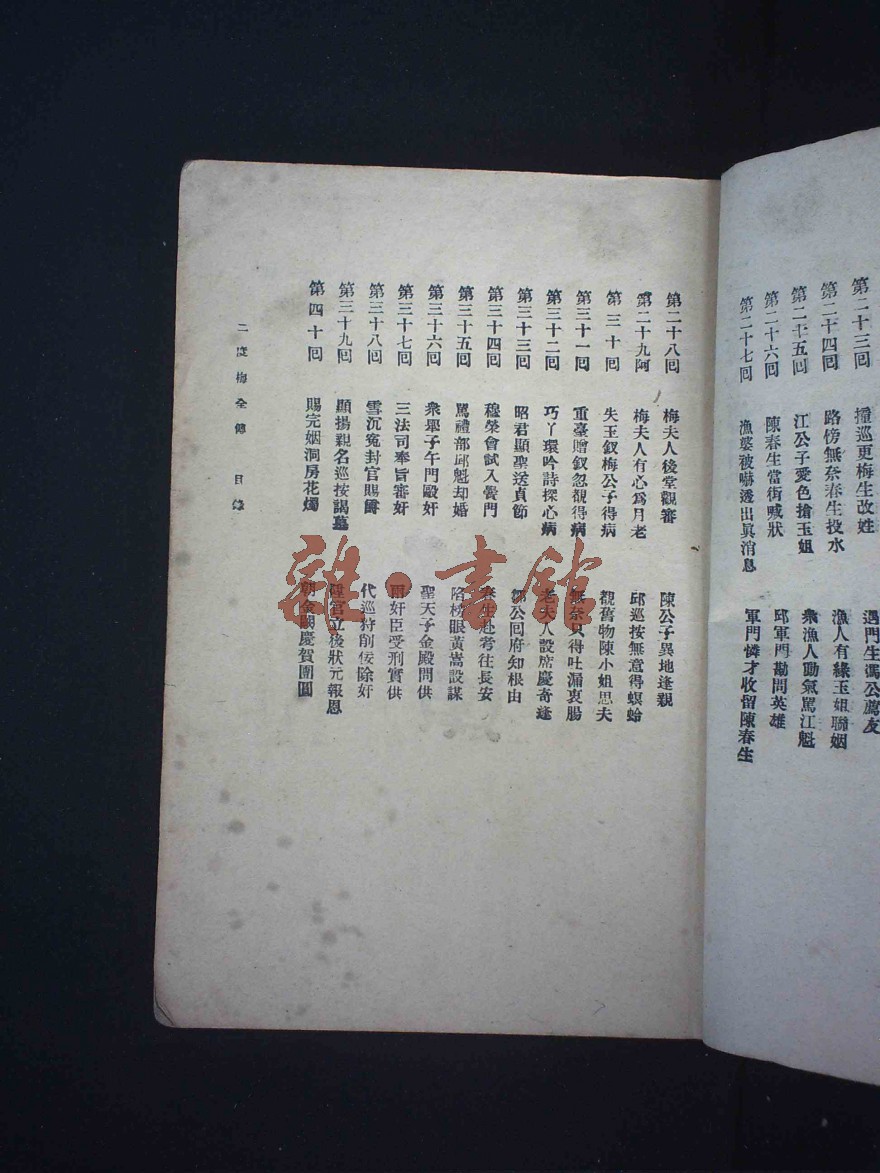 第二十三回 撞巡更梅生改姓 遇門生馮公薦友
第二十四回 路傍無奈春生投水 漁人有緣玉姐聯姻
第二十五回 江公子愛色搶玉姐 衆漁人動氣罵江魁
第二十六回 陳春生當街喊狀 邱軍門勘問英雄
第二十七回 漁婆被嚇透出眞消息 軍門憐才收留陳春生
第二十八回 梅夫人後堂觀審 陳公子異地逢親
第二十九阿 梅夫人有心爲月老 邱巡按無意得螟蛉
第三十回 失玉釵梅公子得病 覩舊物陳小姐思夫
第三十一回 重臺贈釵忽覩得病 無奈只得吐漏衷腸
第三十二回 巧丫環吟詩探心病 老夫人設席慶奇逢
第三十三回 昭君顯聖送貞節 鄒公回府知根由
第三十四回 穆榮會試入黌門 春生赴考往長安
第三十五回 罵禮部邱魁却婚 陷榜眼黃嵩設謀
第三十六回 衆舉子午門毆奸 聖天子金殿問供
第三十七回 三法司奉旨審奸 兩奸臣受刑實供
第三十八回 雪沉冤封官賜爵 代巡狩削佞除奸
第三十九回 顯揚親名巡按謁墓 官立後狀元報恩
第四十回 賜完姻洞房花燭 朝金闕慶賀團圓
二度梅全傳 目錄
雜·書館